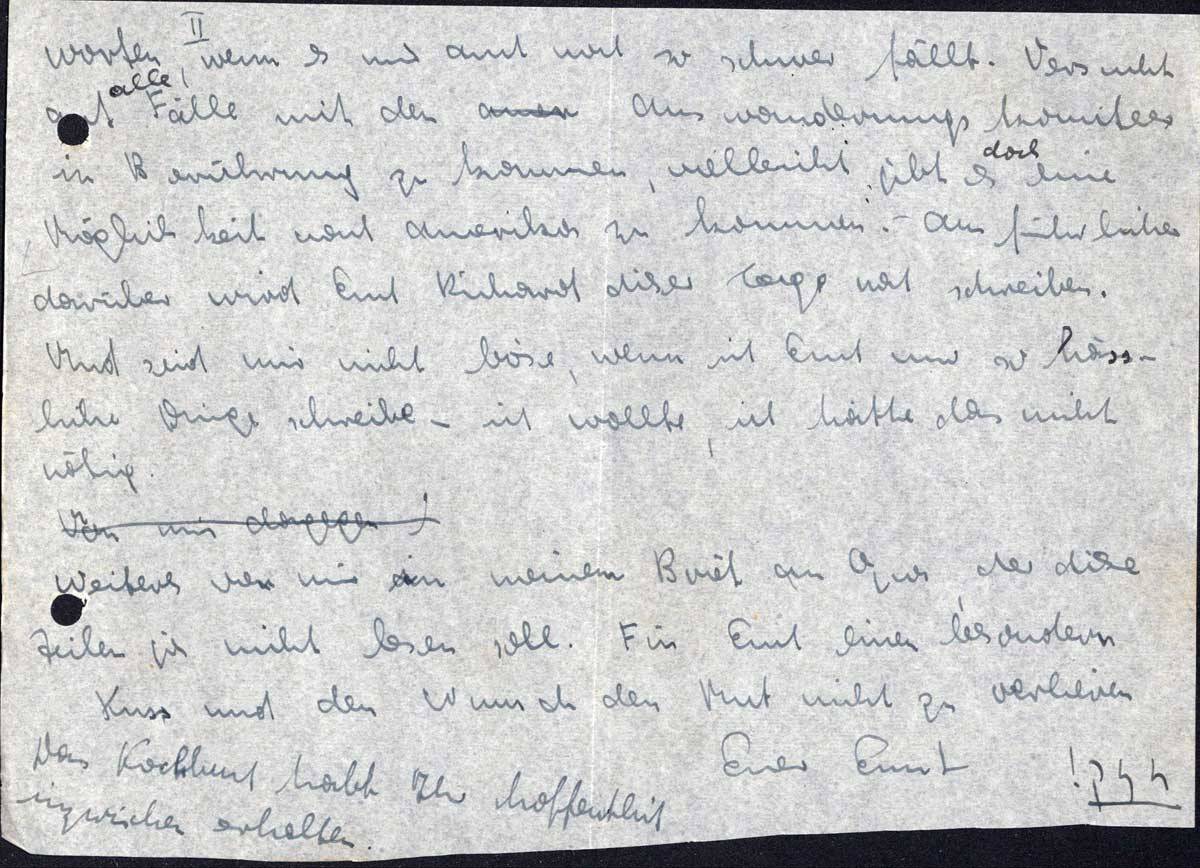 II
worten, wenn es mir auch noch so schwer fällt. Versucht
auf alle Fälle mit den Auswanderungskomitees
in Berührung zu kommen, vielleicht gibt es doch eine
Möglichkeit nach Amerika zu kommen. – Ausführlicher
darüber wird Euch Richard dieser Tage noch schreiben.
Und seid mir nicht böse, wenn ich Euch nur so häss-
liche Dinge schreibe – ich wollte, ich hätte das nicht
nötig.
Von mir dagegen!
Weiteres von mir in meinem Brief an Opa, der diese
Zeilen ja nicht lesen soll. Für Euch einen besondern
Kuss und den Wunsch den Mut nicht zu verlieren
Euer Ernst
Das Kochbuch habt Ihr hoffentlich
inzwischen erhalten.